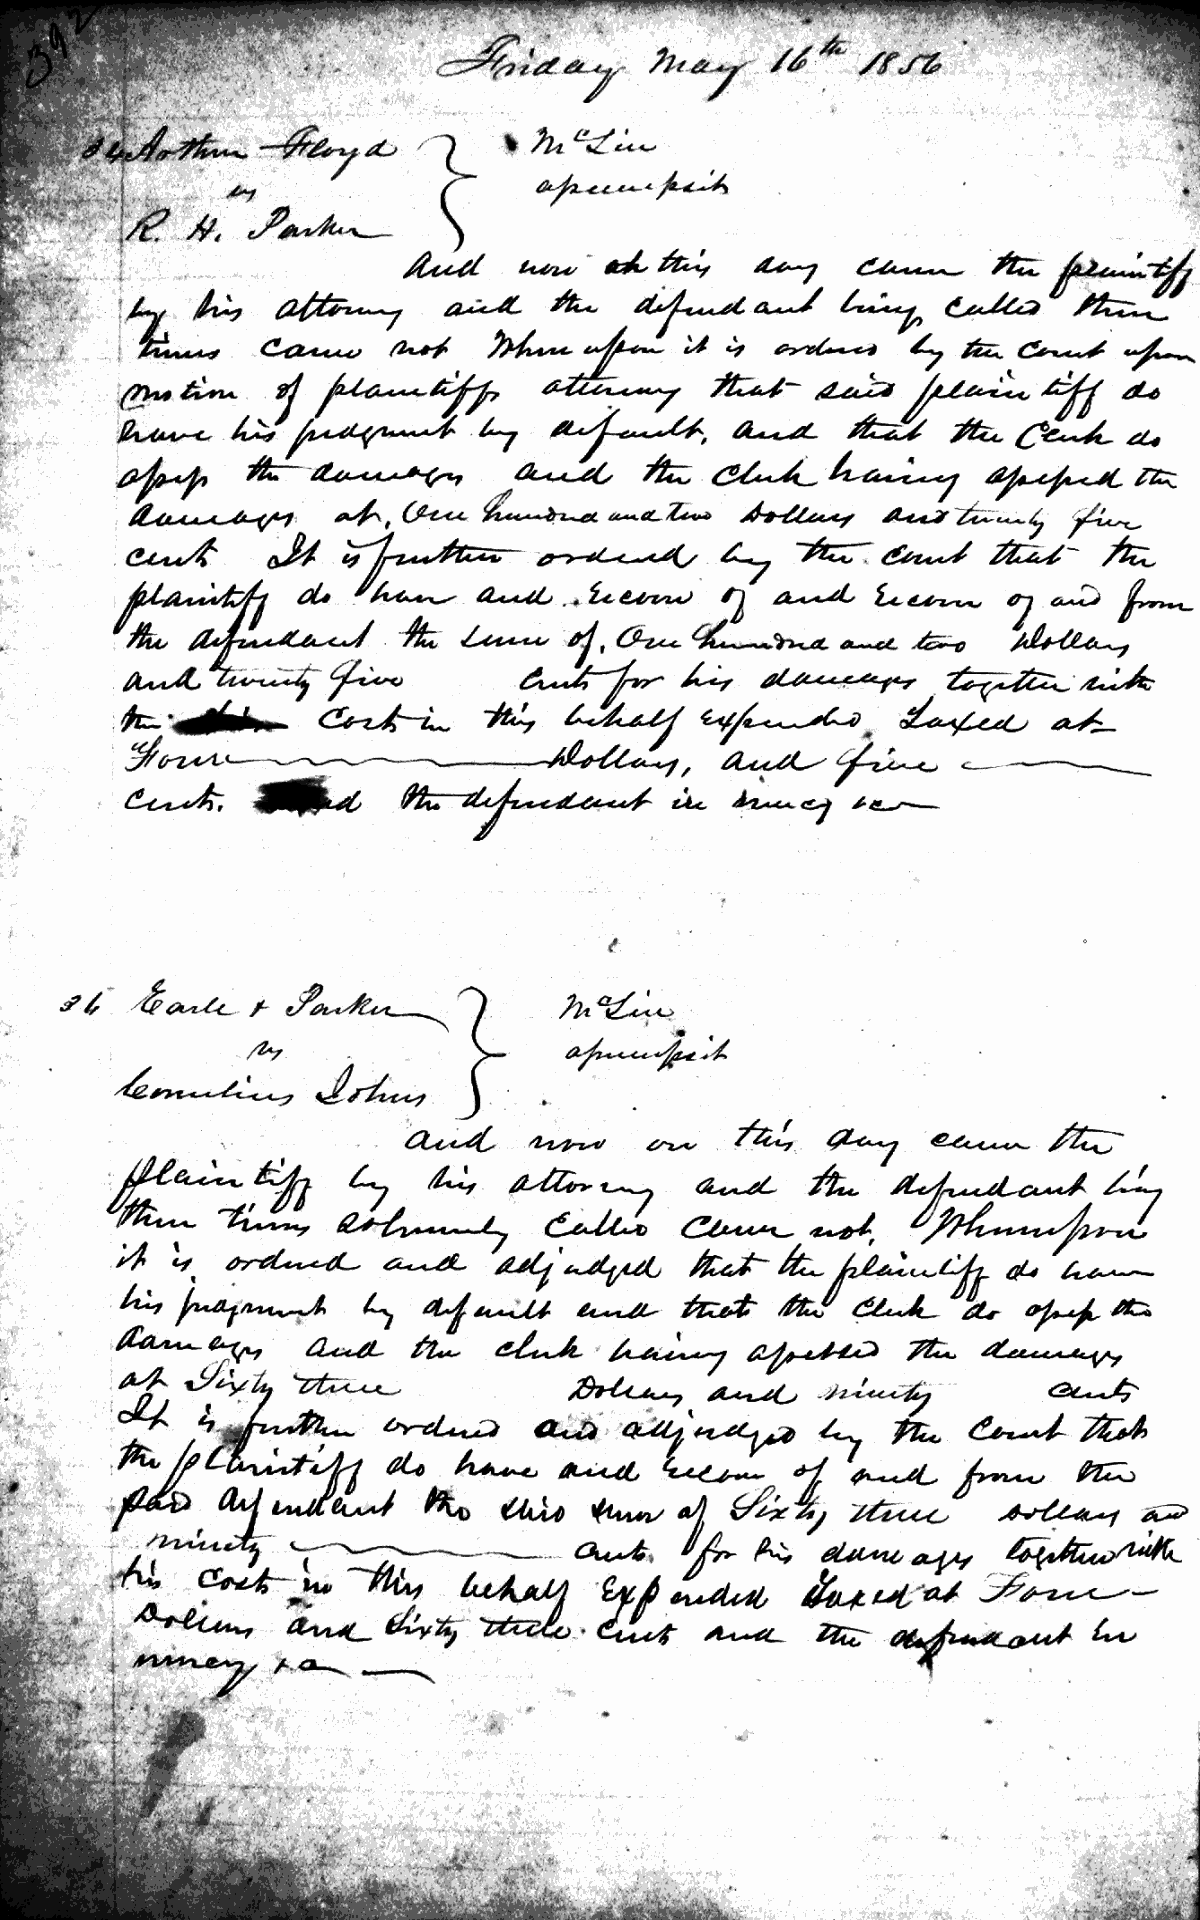 392
Friday May 16th 1856
34 Arthur Floyd McLin
vs assumpsit
R. H. Parker
And now on this day came the plaintiff
by his attorney and the defendant being called three
times came not Whereupon it is ordered by the Court upon
motion of plaintiffs attorney that said plaintiff do
have his judgment by default, and that the Clerk do
assess the damages and the Clerk having assessed the
damages at, One hundred and two Dollars and twenty five
cents It is further ordered by the court that the
plaintiff do have and recover of and recover of and from
the defendant the sum of, One hundred and two Dollars
and twenty five cents for his damages together with
the costs in this behalf expended Taxed at
Four Dollars, and five
cents. the defendant in mercy &c
36 Earle & Parker McLin
vs assumpsit
Cornelius Johns
And now on this day came the
plaintiff by his attorney and the defendant being
three times solemnly called came not, Whereupon
it is ordered and adjudged that the plaintiff do have
his judgment by default and that the Clerk do assess the
damages and the clerk having assessed the damages
at Sixty three Dollars and ninety cents
It is further ordered and adjudged by the Court that
the plaintiff do have and recover of and from the
said defendant the said sum of Sixty three Dollars and
ninety cents for his damages together with
his costs in this behalf Expended Taxed at Four
Dollars and Sixty three Cents and the defendant in
mercy &c